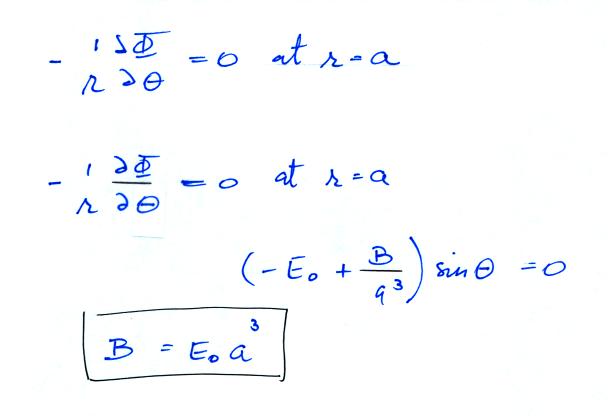 - 1/r ∂Φ/∂θ = 0 at r = a
- 1/r ∂Φ/∂θ = 0 at r = a
(- E₀ + B/a³) sin θ = 0
B = E₀ a³